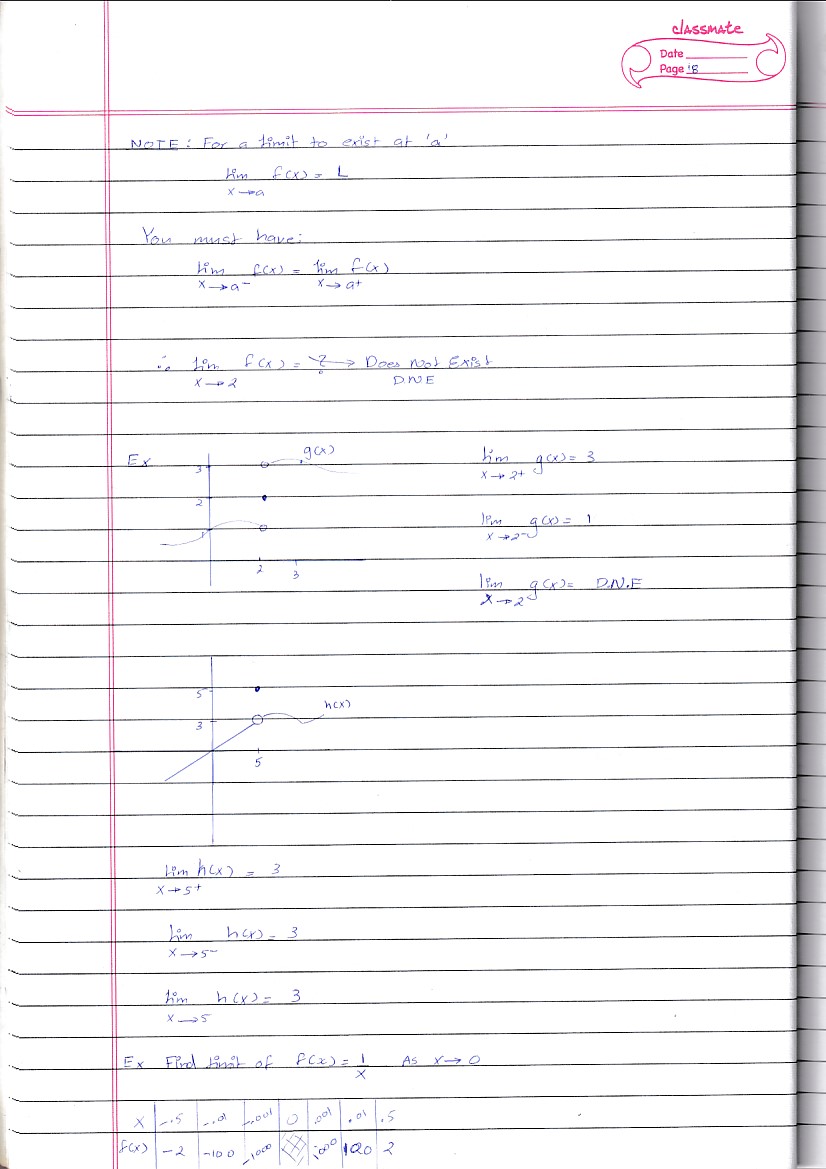 classmate
Date
Page 18
NOTE: For a limit to exist at 'a'
lim f(x) = L
x→a
You must have:
lim f(x) = lim f(x)
x→a⁻ x→a⁺
∴ lim f(x) = ? → Does Not Exist
x→2 D.N.E
Ex
g(x)
3
2
1
2 3
lim g(x) = 3
x→2⁺
lim g(x) = 1
x→2⁻
lim g(x) = D.N.E
x→2
5
h(x)
3
5
lim h(x) = 3
x→5⁺
lim h(x) = 3
x→5⁻
lim h(x) = 3
x→5
Ex Find limit of f(x) = 1/x As x→0
x -.5 -.01 -.001 0 .001 .01 .5
f(x) -2 -100 -1000 1000 100 2